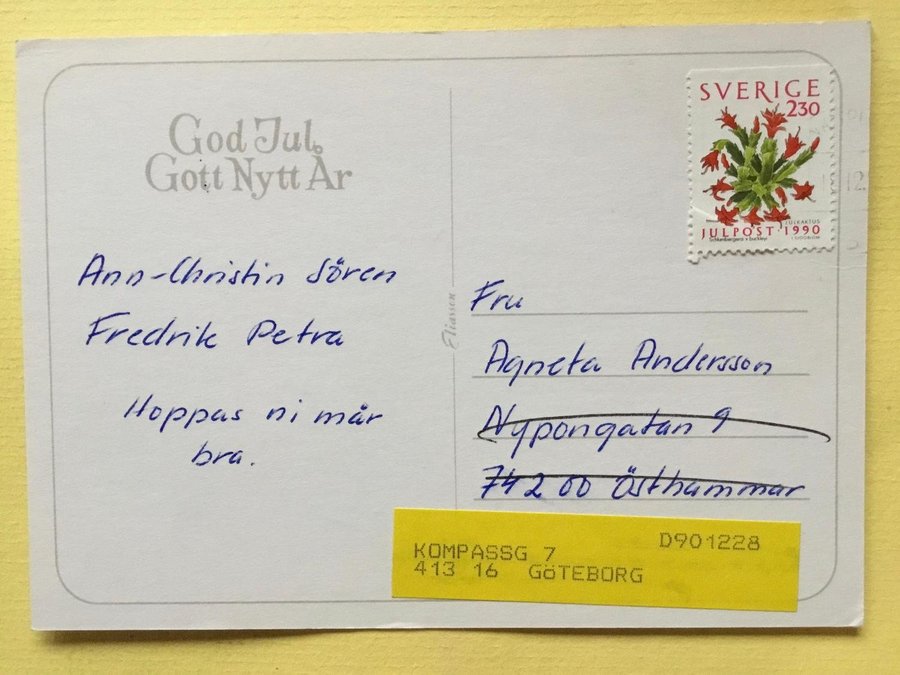 God Jul,
Gott Nytt År
Ann-Christin Sören
Fredrik Petra
Hoppas ni mår
bra.
Eliasson
SVERIGE
230
JULKAKTUS
Schlumbergera x buckleyi
JULPOST·1990
Fru
Agneta Andersson
Nypongatan 9
742 00 Östhammar
D901228
KOMPASSG 7
413 16 GöTEBORG